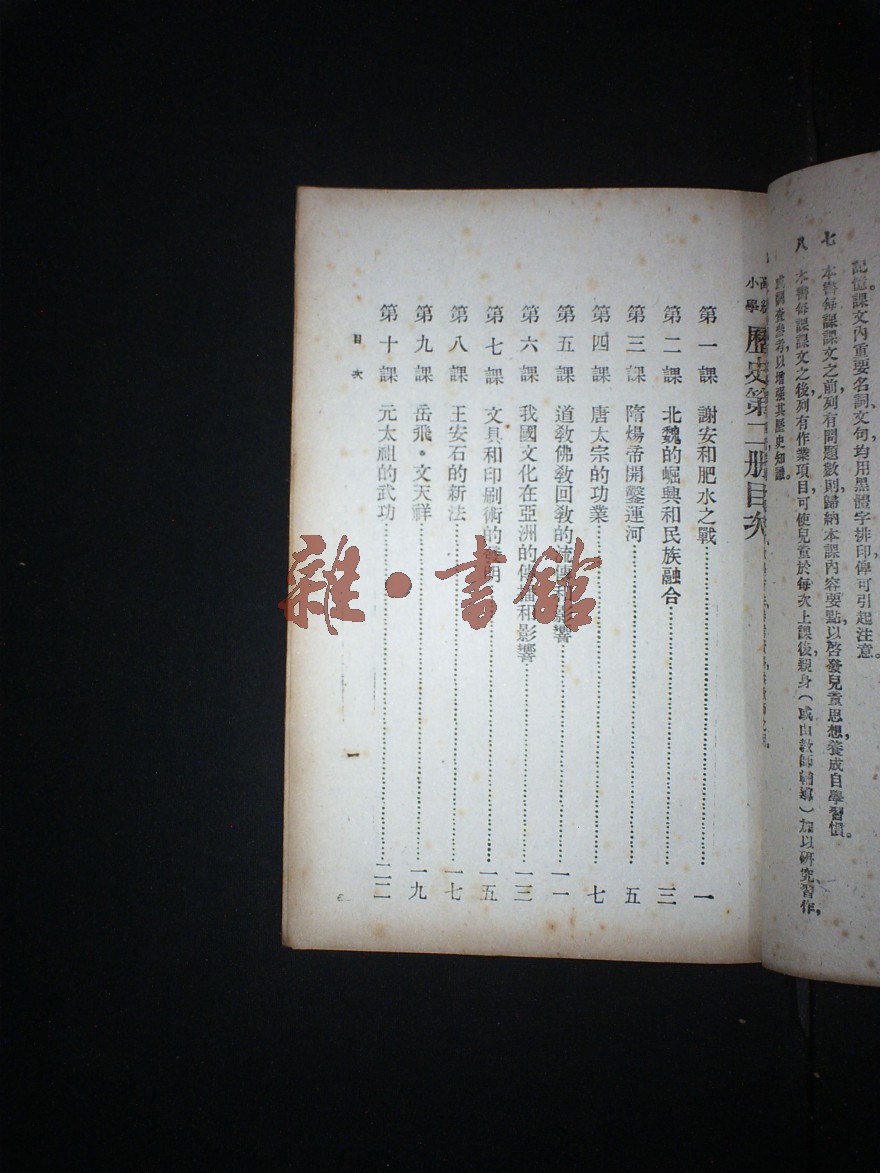 記憶。課文內重要名詞、文句均用黑體字排印俾可引起注意。
七 本書每課課文之前,列有問題數則,歸納本課內容要點,以啓發兒童思想,養成自學習慣。
八 本書每課課文之後,列有作業項目,可使兒童於每次上課後,親身(或由教師輔導)加以研究習作,
參考,以增强其歷史知識。
小學
歷史第二册目次
第一課 謝安和肥水之戰 一
第二課 北魏的崛興和民族融合 三
第三課 隋煬帝開鑿運河 五
第四課 唐太宗的功業 七
第五課 道教佛教回教的流傳和影響 一一
第六課 我國文化在亞洲的傳播和影響 一三
第七課 文具和印刷術的發明 一五
第八課 王安石的新法 一七
第九課 岳飛・文天祥 一九
第十課 元太祖的武功 二二
目次
一
雜・書館